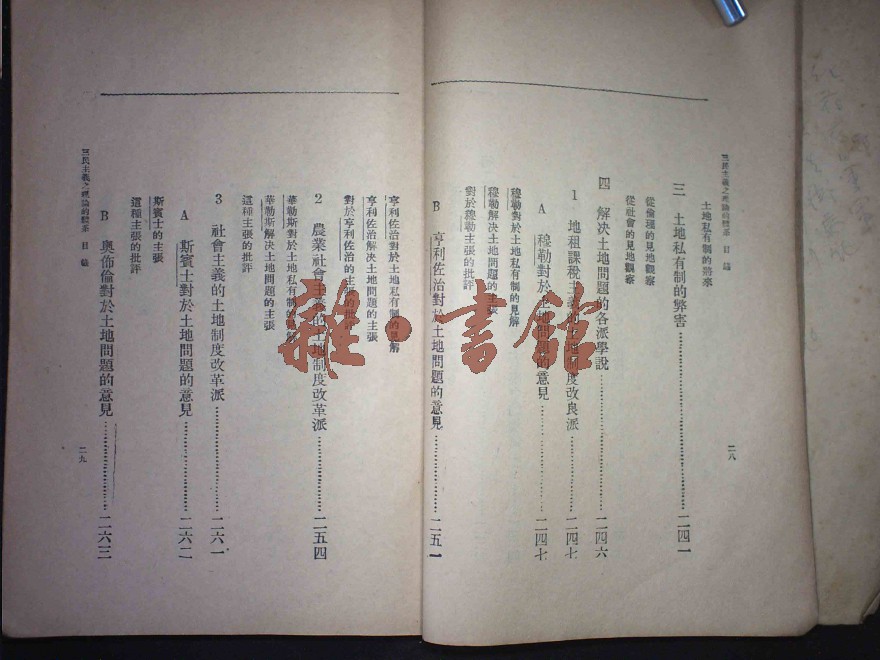 三民主義之理論的體系 目錄
土地私有制的將來
三 土地私有制的弊害……二四一
從倫理的見地觀察
從社會的見地觀察
四 解决土地問題的各派學說……二四六
1 地租課稅主義的土地制度改良派……二四七
A 穆勒對於土地問題的意見……二四七
穆勒對於土地私有制的見解
穆勒解决土地問題的主張
對於穆勒主張的批評
B 亨利佐治對於土地問題的意見……二五一
二八
亨利佐治對於土地私有制的見解
亨利佐治解决土地問題的主張
對於亨利佐治的主張的批評
2 農業社會主義的土地制度改革派……二五四
華勒斯對於土地私有制的見解
華勒斯解决土地問題的主張
這種主張的批評
3 社會主義的土地制度改革派……二六一
A 斯賓士對於土地問題的意見……二六二
斯賓士的主張
這種主張的批評
B 奧佈倫對於土地問題的意見……二六三
三民主義之理論的體系 目錄
二九
雜·書館